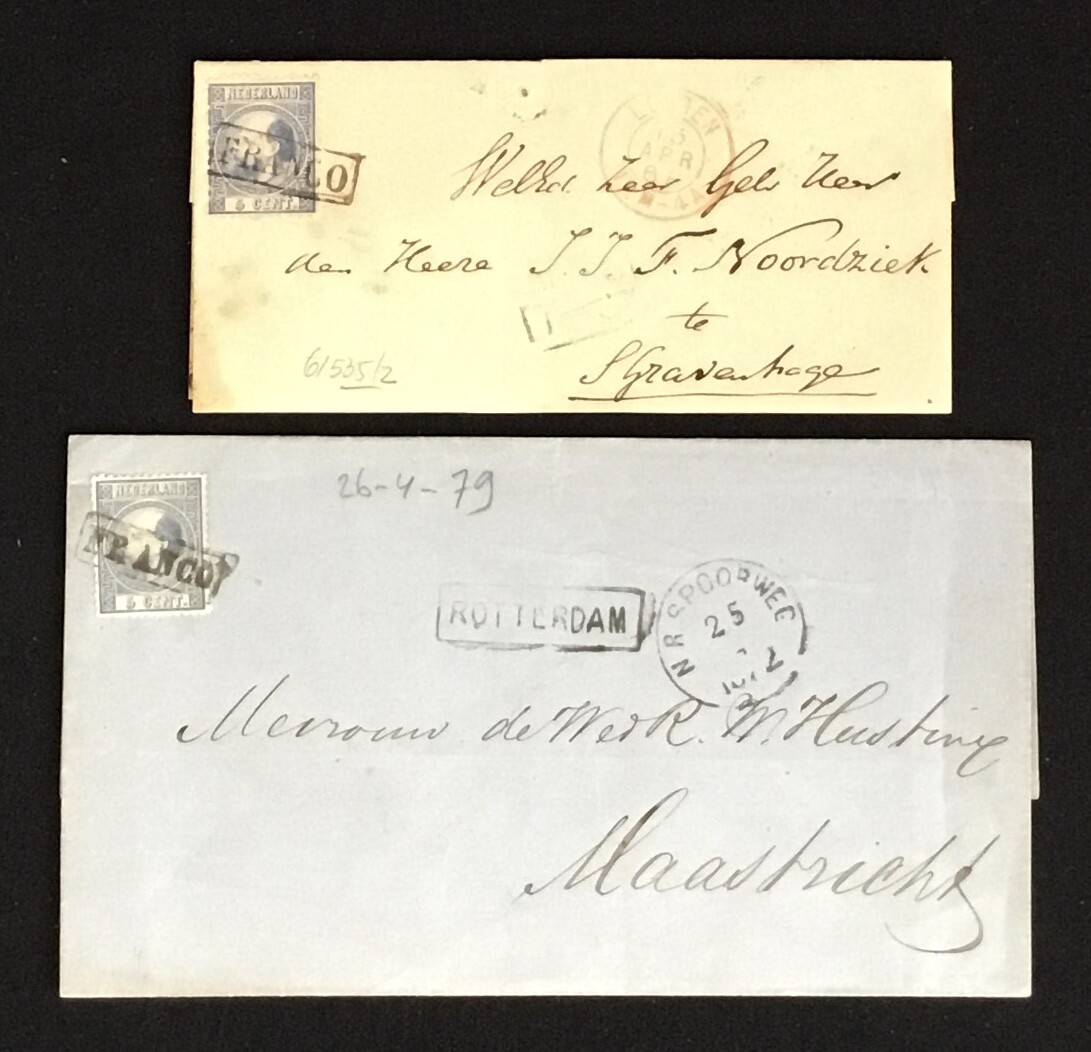 NEDERLAND
FRANCO
5 CENT.
LEIDEN
APR
WelEd. zeer Gelr Heer
den Heere J. J. F. Noordziek
te
SGravenhage
61535/2
26-4-79
NEDERLAND
FRANCO
5 CENT.
ROTTERDAM
N R SPOORWEG
25
Mevrouw de Wed R. W. Hustinx
Maastricht